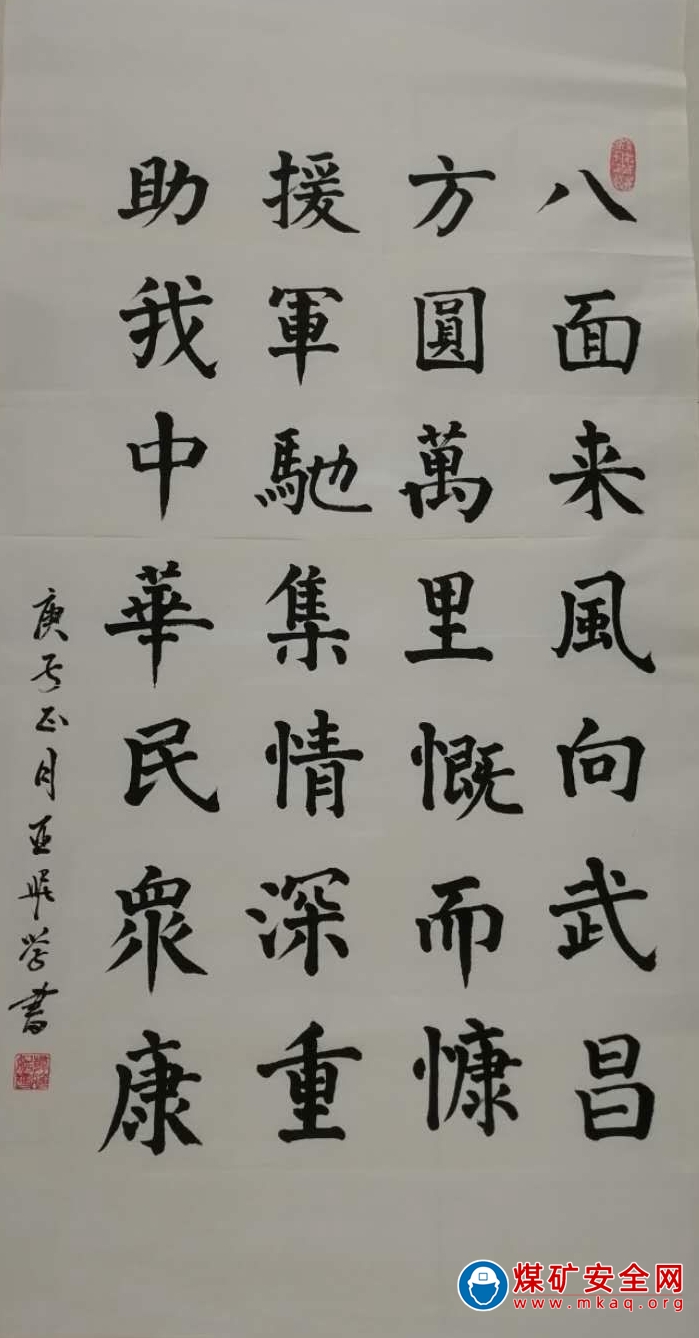 八面来風向武昌
方圓萬里慨而慷
援軍馳集情深重
助我中華民眾康
庚子正月亚兴学書
煤矿安全网
www.mkaq.org